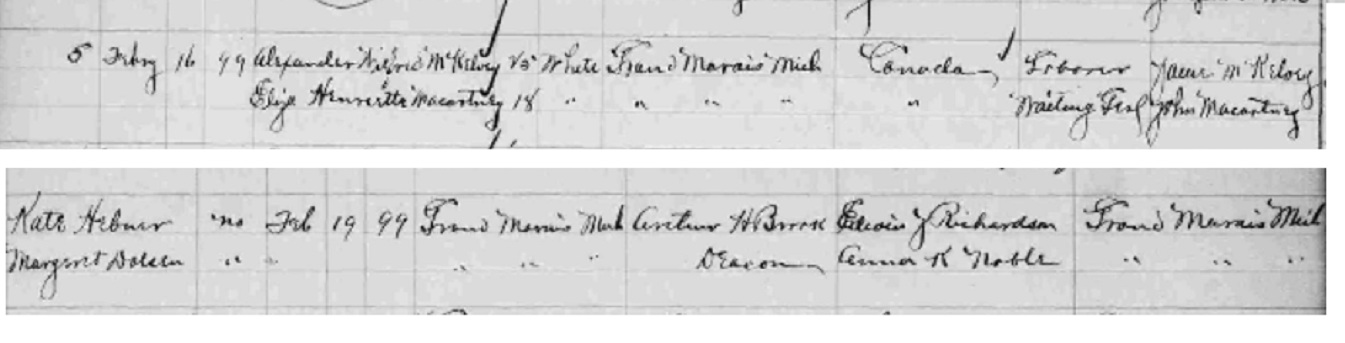 5 Febry 16 99 Alexander Wilfred McKelvey 25 White Grand Marais Mich Canada Laborer James McKelvey
Eliza Henrietta Macartney 18 " " " " " Waiting Girl John Macartney
Kate Hebner no Feb 19 99 Grand Marais Mich Arthur H Brook Edwin J Richardson Grand Marais Mich
Margaret Dolsen " " " " " Deacon Anna K Noble " " "